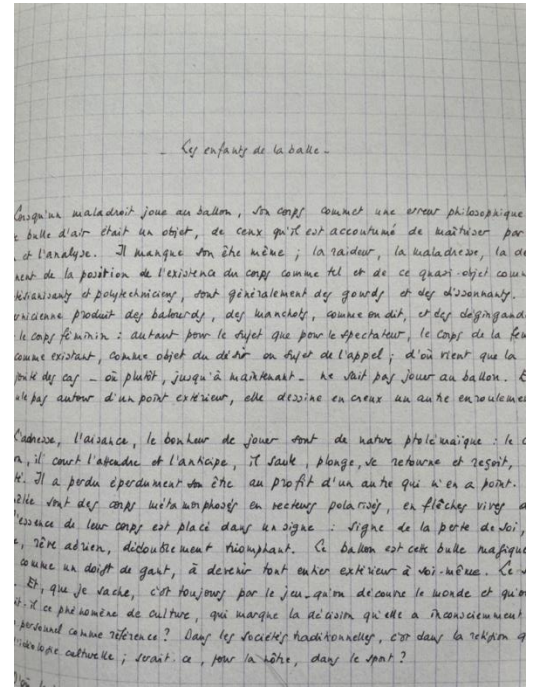 - Les enfants de la balle -
Lorsqu'un maladroit joue au ballon, son corps commet une erreur philosophique
bulle d'air était un objet, de ceux qu'il est accoutumé de maîtriser par
et l'analyse. Il manque son être même ; la raideur, la maladresse, la
de la position de l'existence du corps comme tel et de ce quasi-objet
et polytechniciens, sont généralement des gourds et des
produit des balourds, des manchots, comme on dit, et des
le corps féminin : autant pour le sujet que pour le spectateur, le corps de la
comme existant, comme objet du désir ou sujet de l'appel ; d'où vient que la
des cas - ou plutôt, jusqu'à maintenant - ne sait pas jouer au ballon.
pas autour d'un point extérieur, elle dessine en creux un autre
L'adresse, l'aisance, le bonheur de jouer sont de nature ptolémaïque : le
, il court l'attendre et l'anticipe, il saute, plonge, se retourne et reçoit,
Il a perdu éperdument son être au profit d'un autre qui n'en a point.
sont des corps métamorphosés en vecteurs polarisés, en flèches vives
l'essence de leur corps est placé dans un signe : signe de la perte de soi,
, rêve aérien, dédoublement triomphant. Ce ballon est cette bulle magique
comme un doigt de gant, à devenir tout entier extérieur à soi-même. Ce
Et, que je sache, c'est toujours par le jeu qu'on découvre le monde et
ce phénomène de culture, qui marque la décision qu'elle a inconsciemment
personnel comme référence ? Dans les sociétés traditionnelles, c'est dans la religion
culturelle ; serait-ce, pour la nôtre, dans le sport ?